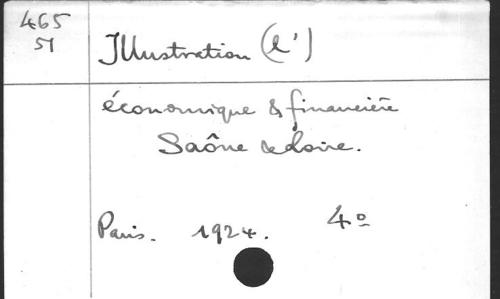 465
51
Illustration (l')
économique & financière
Saône & Loire.
Paris. 1924. 4º